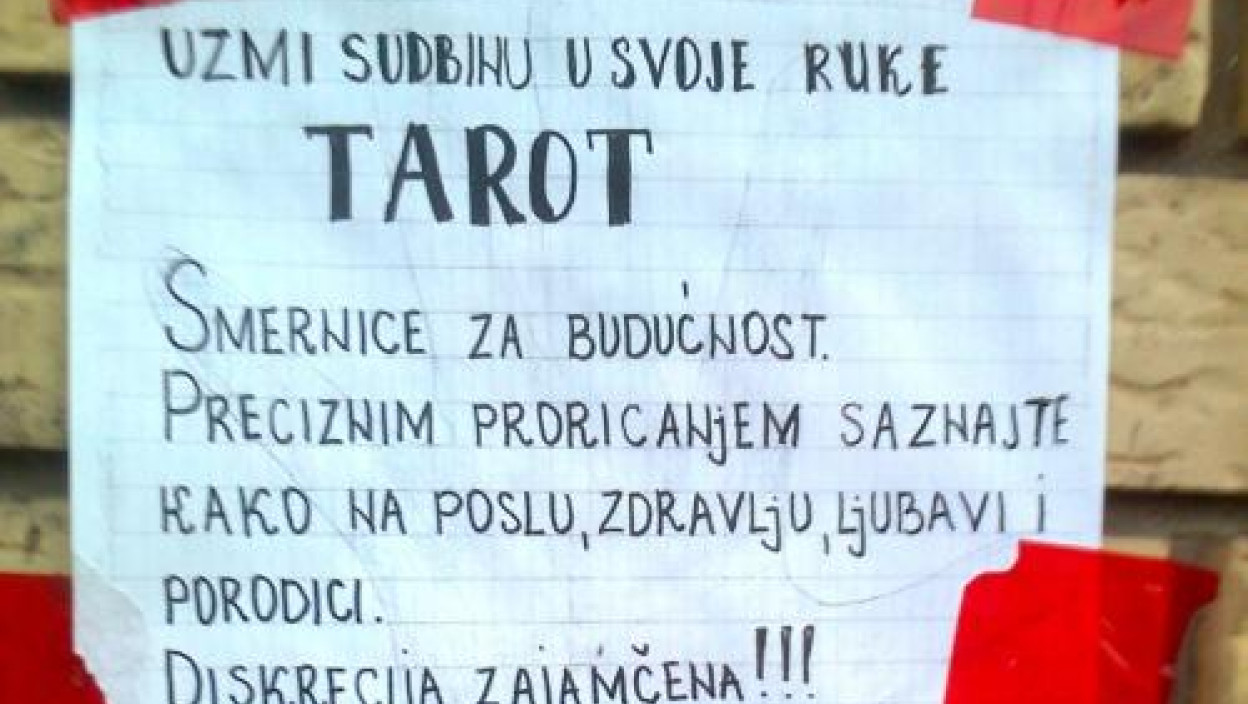 UZMI SUDBINU U SVOJE RUKE
TAROT
SMERNICE ZA BUDUĆNOST.
PRECIZNIM PRORICANjEM SAZNAJTE
KAKO NA POSLU, ZDRAVLjU, LjUBAVI i
PORODICI.
DISKRECIJA ZAJAMČENA!!!